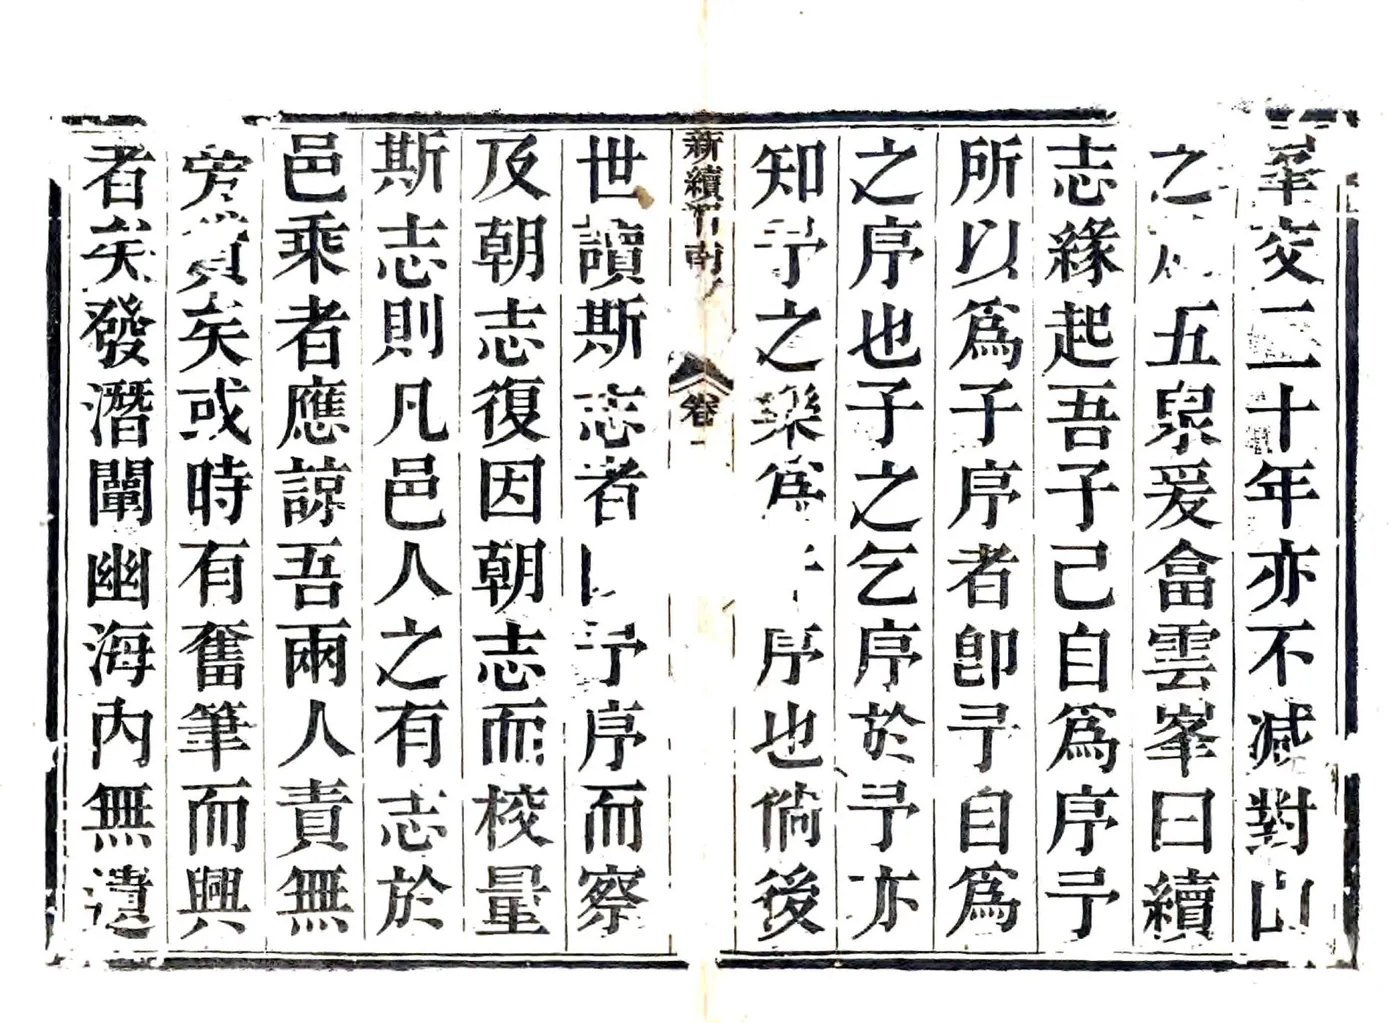 峯交二十年亦不减對山
之五泉爰畣雲峯曰續
志緣起吾子己自爲序予
所以爲子序者卽予自爲
之序也子之乞序於予亦
知予之樂爲序也倘後
新續
卷一
世讀斯志者予序而察
及朝志復因朝志而校量
斯志則凡邑人之有志於
邑乘者應諒吾兩人責無
旁貸矣或時有奮筆而興
者矣發潛闡幽海內無遺